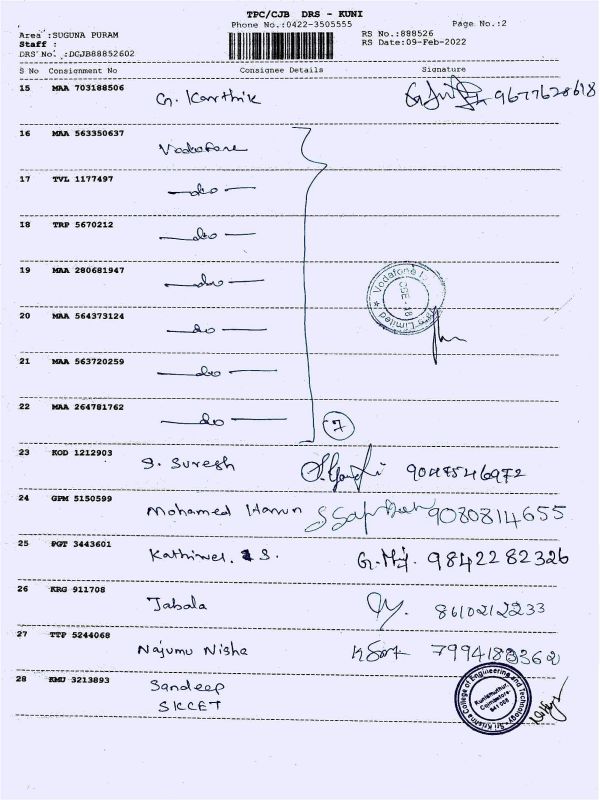 TPC/CJB DRS - KUNI
Phone No.:0422-3505555 Page No.:2
Area :SUGUNA PURAM RS No.:888526
Staff : RS Date:09-Feb-2022
DRS No. :DCJB88852602
S No Consignment No Consignee Details Signature
15 MAA 703188506 G. Karthik 9677628618
16 MAA 563350637 Vodafone
17 TVL 1177497 do
18 TRP 5670212 do
19 MAA 280681947 do
20 MAA 564373124 do
21 MAA 563720259 do
22 MAA 264781762 do 7
Vodafone Limited
23 KOD 1212903 S. Suresh 9047546972
24 GPM 5150599 Mohamed 9080814655
25 PGT 3443601 Kathirvel. S. 9842282326
26 KRG 911708 Jabala 8610212233
27 TTP 5244068 Najumu Nisha 7994183362
28 KMU 3213893 Sandeep
SKCET
Sri Krishna College of Engineering and Technology
Kuniamuthur,
Coimbatore-
641 008